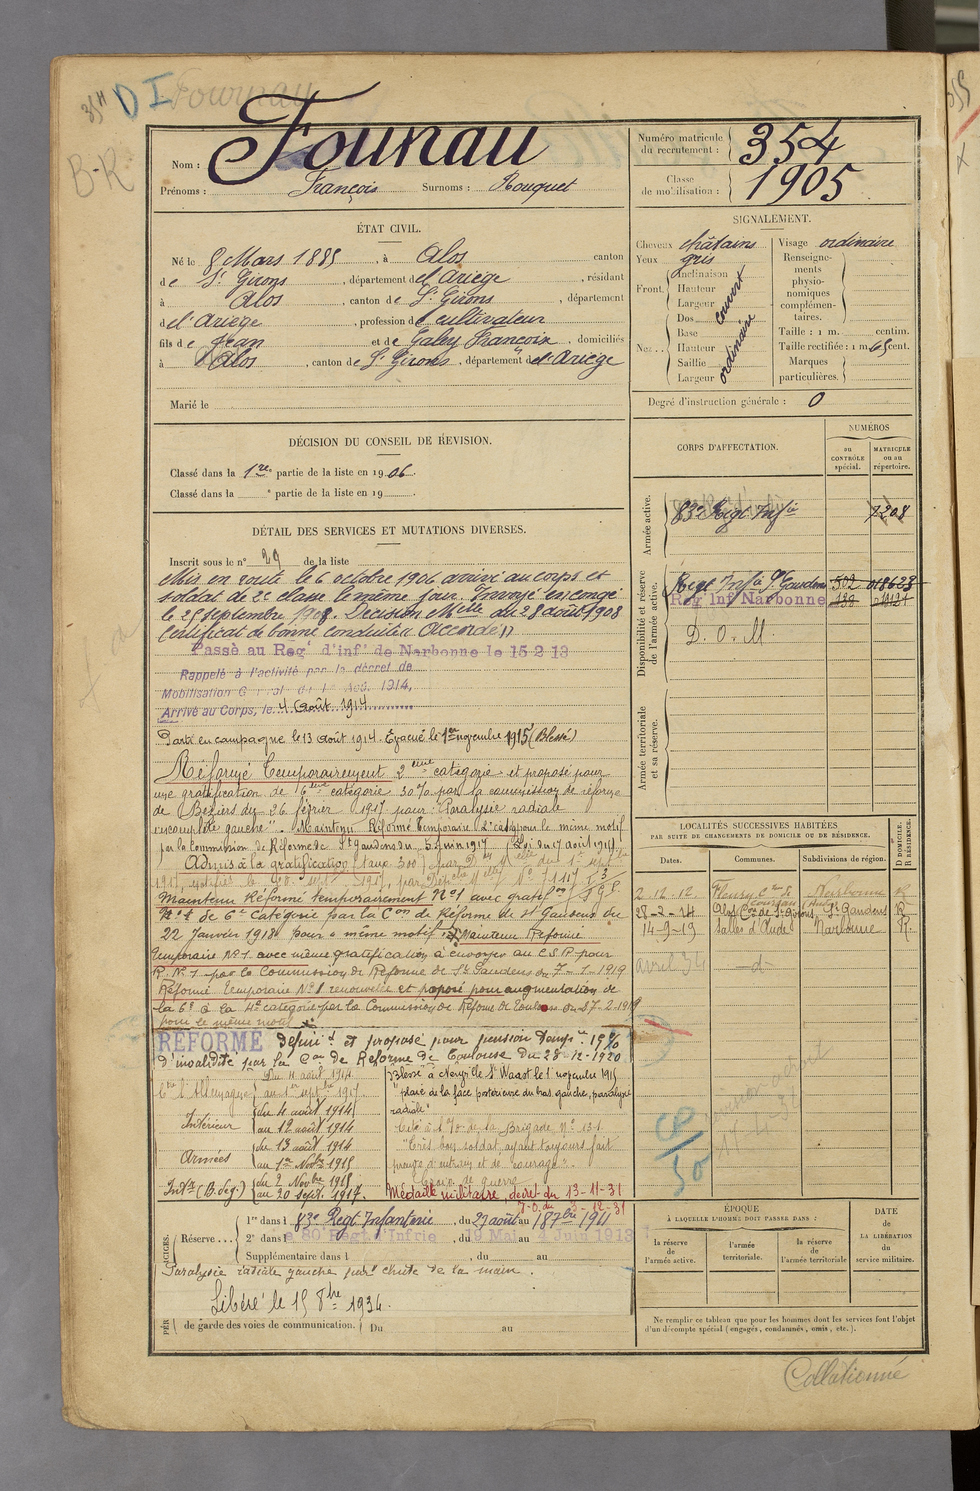 35H D I Fournau
B-R
Nom : Founau
Prénoms : François Surnoms : Rouquet
Numéro matricule du recrutement : 354
Classe de mobilisation : 1905
ÉTAT CIVIL.
Né le 8 Mars 1885, à Alos canton
de St Girons, département de l'Ariège, résidant
à Alos, canton de St Girons, département
de l'Ariège, profession de cultivateur
fils de Jean et de Galey Françoise, domiciliés
à Alos, canton de St Girons, département de l'Ariège
Marié le
SIGNALEMENT.
Cheveux châtains
Yeux gris
Front. Inclinaison
Hauteur
Largeur
couvert
Nez.. Dos
Base
Hauteur
Saillie
Largeur
ordinaire
Visage ordinaire
Renseigne-
ments
physio-
nomiques
complémen-
taires.
Taille : 1 m. centim.
Taille rectifiée : 1 m. 65 cent.
Marques
particulières.
Degré d'instruction générale : 0
DÉCISION DU CONSEIL DE RÉVISION.
Classé dans la 1re partie de la liste en 1906.
Classé dans la e partie de la liste en 19
DÉTAIL DES SERVICES ET MUTATIONS DIVERSES.
Inscrit sous le n° 29 de la liste
Mis en route le 6 octobre 1906 arrivé au corps et
soldat de 2e classe le même jour. Envoyé en congé
le 25 septembre 1908. Décision Mlle du 28 août 1908
Certificat de bonne conduite « Accordé »
Passé au Reg' d'inf' de Narbonne le 15 2 13
Rappelé à l'activité par le décret de
Mobilisation Générale du 1er Aoû. 1914,
Arrivé au Corps, le 4 Août 1914
Parti en campagne le 13 août 1914. Évacué le 1er novembre 1915 (Blessé)
Réformé Temporairement 2eme catégorie et proposé pour
une gratification de 6eme catégorie 30% par la commission de réforme
de Béziers du 26 février 1917 pour "Paralysie radiale
incomplète gauche". Maintenu Réformé temporaire 2e catég pour le même motif
par la Commission de Réforme de St Gaudens du 5 juin 1917
Admis à la gratification (taux 300)
Maintenu Réformé temporairement N°1 avec gratif
de 6e catégorie par la Con de Réforme de St Gaudens du
22 Janvier 1918 pour "même motif" Maintenu Réformé
temporaire N°1 avec même gratification à envoyer au C.S.P. pour
R. N°1 par la Commission de Réforme de St Gaudens du 7-1-1919
Réformé Temporaire N°1 renouvelée et proposé pour augmentation de
la 6e à la 4e catégorie par la Commission de Réforme de Toulouse du 17-2-1919
pour le même motif
RÉFORMÉ définit et proposé pour pension temp.
d'invalidité par la Con de Réforme de Toulouse du 28-12-1920
Cte l'Allemagne du 4 août 1914
au 1er septbre 1917.
Intérieur du 4 août 1914
au 12 août 1914
Armées du 13 août 1914
au 1er Novbre 1915
Intr (B. deg.) du 2 Novbre 1915
au 20 Sept. 1917.
Blessé à Neuville St Vaast le 1er novembre 1915
"plaie de la face postérieure du bras gauche, paralysie
radiale"
Cité à l'O. de la Brigade N° 131
"Très bon soldat, ayant toujours fait
preuve d'entrain et de courage".
Croix de guerre
Médaille militaire, décret du 13-11-31
Réserve... 1re dans l 83e Regt Infanterie, du 27 août au 18 7bre 1911
2e dans l e 80 Régt d'Infrie, du 19 Mai au 4 Juin 1913
Supplémentaire dans l , du au
Paralysie radiale gauche part chute de la main.
Libéré le 15 8bre 1934.
de garde des voies de communication. Du au
CORPS D'AFFECTATION.
NUMÉROS
au CONTRÔLE spécial.
MATRICULE ou au répertoire.
Armée active.
83e Regt Infie 7208
Disponibilité et réserve de l'armée active.
Regt Infie St Gaudens 502 018628
Reg Inf Narbonne
D. O. M.
Armée territoriale et sa réserve.
LOCALITÉS SUCCESSIVES HABITÉES
PAR SUITE DE CHANGEMENTS DE DOMICILE OU DE RÉSIDENCE.
Dates. Communes. Subdivisions de région. D DOMICILE. R RÉSIDENCE.
2-12-12. Fleury Narbonne R
28-2-14 Alos Con de St Girons St Gaudens R
14-9-19 Salles d'Aude Narbonne R.
avril 34 -d-
CP/30
ÉPOQUE
À LAQUELLE L'HOMME DOIT PASSER DANS :
la réserve de l'armée active.
l'armée territoriale.
la réserve de l'armée territoriale
DATE de LA LIBÉRATION du service militaire.
Ne remplir ce tableau que pour les hommes dont les services font l'objet
d'un décompte spécial (engagés, condamnés, omis, etc.).
Collationné